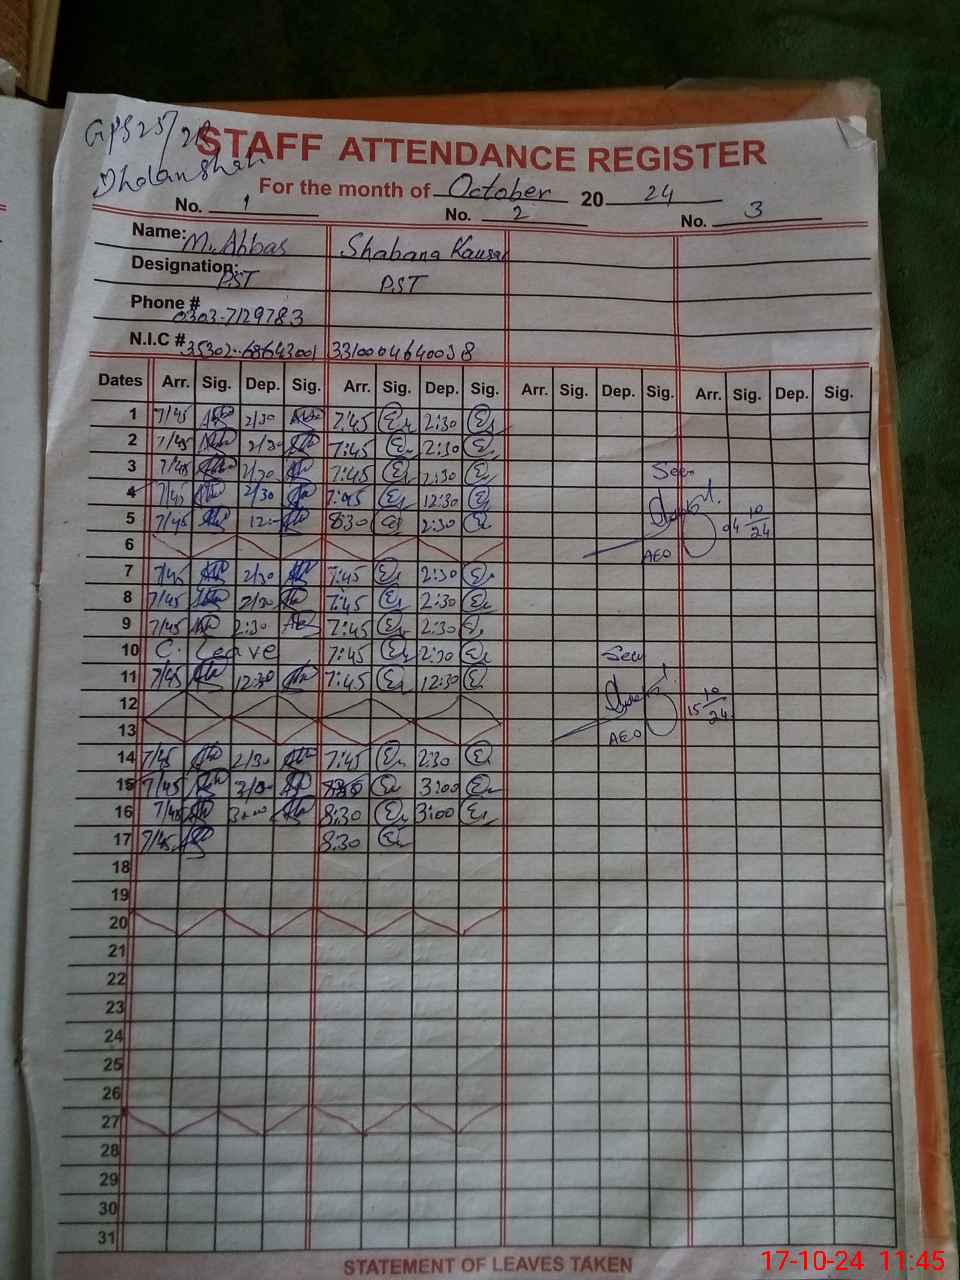 GPS 25/2R
Dholan Shah
STAFF ATTENDANCE REGISTER
For the month of October 20 24
No. 1 No. 2 No. 3
Name: M. Abbas Shabana Kausar
Designation: PST PST
Phone # 0303-7129783
N.I.C # 3310004640038
Dates Arr. Sig. Dep. Sig. Arr. Sig. Dep. Sig. Arr. Sig. Dep. Sig. Arr. Sig. Dep. Sig.
1 7/45 2/30 7:45 2:30
2 7/45 2/30 7:45 2:30
3 7/45 2/30 7:45 2:30
Seen
4 7/45 2/30 7:45 12:30
5 7/45 8:30 2:30
04 10/24
6
AEO
7 7/45 2/30 7:45 2:30
8 7/45 2/30 7:45 2:30
9 7/45 2:30 7:45 2:30
10 C. Leave 7:45 2:30
Seen
11 7/45 12:30 7:45 12:30
12
15 10/24
13
AEO
14 7/45 2/30 7:45 2:30
15 7/45 3:00
16 7/45 8:30 3:00
17 7/45 8:30
18
19
20
21
22
23
24
25
26
27
28
29
30
31
STATEMENT OF LEAVES TAKEN
17-10-24 11:45